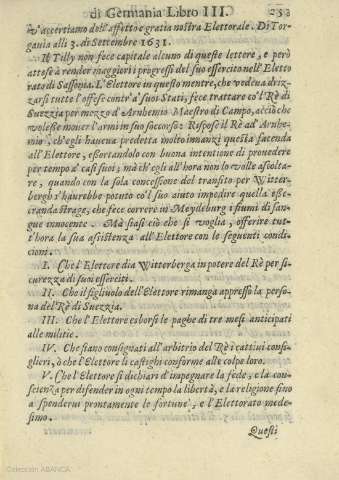 di Germania Libro III. 253
v'accertiamo dell'affetto e gratia nostra Elettorale. Di Tor-
gauia alli 3. di Settembre 1631.
Il Tilly non fece capitale alcuno di queste lettere, e però
attese à render maggiori i progressi del suo essercito nell'Eletto
rato di Sassonia. L'Elettore in questo mentre, che vedeua driz-
zarsi tutte l'offese contr'a suoi Stati, fece trattare co'l Rè di
Suezzia per mezzo d'Arnhemio Maestro di Campo, acciò che
volesse mouer l'armi in suo soccorso: Rispose il Rè ad Arnhe-
mio, ch'egli haueua predetta molto innanzi questa facenda
all'Elettore, essortandolo con buona intentione di prouedere
per tempo a' casi suoi; mà ch'egli all'hora non lo volle ascolta-
re, quando con la sola concessione del transito per Witter-
bergh s'haurebbe potuto co'l suo aiuto impedire quella esse-
cranda strage, che fece correre in Meydeburg i fiumi di san-
gue innocente. Mà siasi ciò che si voglia, offerire tut-
t'hora la sua assistenza all'Elettore con le seguenti condi-
cioni.
I. Che l'Elettore dia Witterberga in potere del Rè per si-
curezza di suoi esserciti.
II. Che il figliuolo dell'Elettore rimanga appresso la perso-
na del Rè di Suezzia.
III. Che l'Elettore esborsi le paghe di tre mesi anticipati
alle militie.
IV. Che siano consignati all'arbitrio del Rè i cattiui consi-
glieri, ò che l'Elettore li castighi conforme alle colpe loro.
V. Che l'Elettore si dichiari d'impegnare la fede, e la con-
scienza per difender in ogni tempo la libertà, e la religione sino
a spenderui prontamente le fortune, e l'Elettorato mede-
simo.
Questi
Colección ABANCA